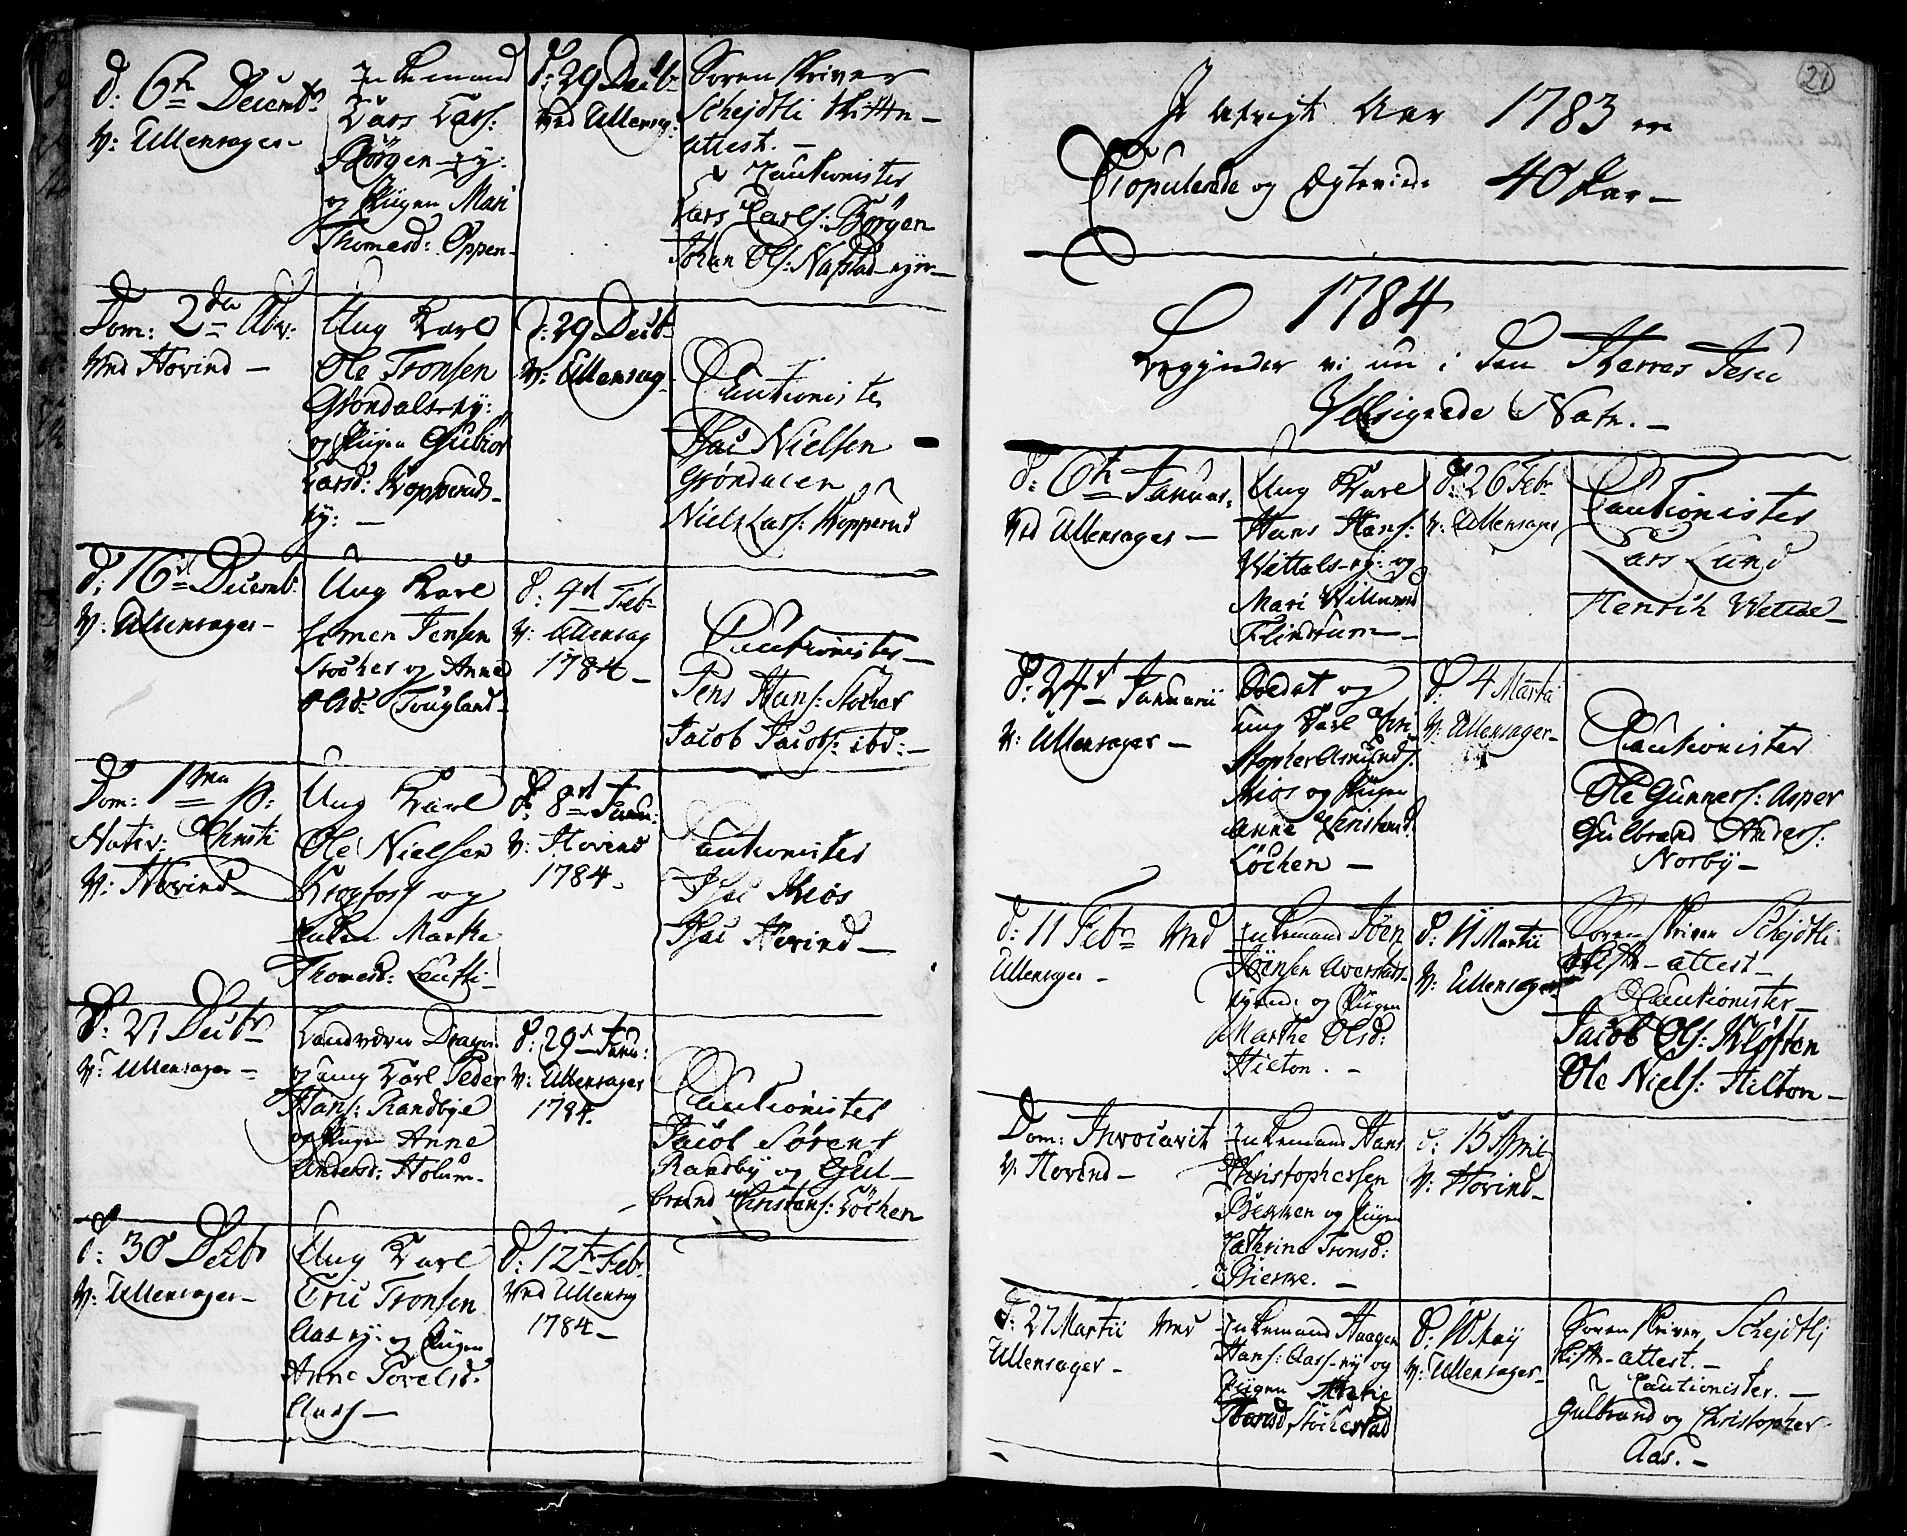 d: 6te Decembr
V: Ullensager
Enkemand
Lars Lars:
Børgen-ey:
og Pigen Mari
Thomesd: Oppen-
d: 29 Decbr
Ved Ullensag:
Sorenskriver
Schejdtli Skifte-
attest. -
Cautionister
Lars Carls: Børgen
Johan Ols: Nafstad-eyer-
Dom: 2da Adv:
Ved Hovind -
Ung Karl
Ole Tronsen
Grøndals-ey:
og Pigen Gubior
Larsd: Kopperuds-
ey: -
d: 29 Decbr
V: Ullensag
Cautionister
Isac Nielsen
Grøndalen
Niels Lars: Kopperud
d: 16de Decemb:
V: Ullensager -
Ung Karl
Simen Jensen
Stocher og Anne
Olsd: Tougland -
d: 9de Febr
V: Ullensag
1784 -
Cautionister -
Jens Hans: Stocher
Jacob Jacobs: ibd: -
Dom: 1ma p:
Nativ: Christi
V: Hovind -
Ung Karl
Ole Nielsen
Krogfoss og
Enken Marthe
Thomesd:
d: 8de Janu:
V: Hovind
1784 -
Cautionister
Isac Kiøs
Isac Hovind -
d: 27 Decbr
V: Ullensager -
Landværn Dragon
og ung Karl Peder
Hans: Randbye
og Pigen Anne
Andersd: Holum -
d: 29de Janu:
V: Ullensager
1784.
Cautionister
Jacob Sørens:
Randby og Gul-
brand Christens: Løchen
d: 30 Decbr
V: Ullensager -
Ung Karl
Eric Tronsen
Aas ey: og Pigen
Anne Povelsd:
Aas -
d: 12te Febr
Ved Ullensag
1784 -
21
I afvigte Aar 1783 ere
Copulerede og Ægteviede 40 Par -
1784
begynder vi nu i den Herres Jesu
Velsignede Navn. -
d: 6te Januar:
Ved Ullensager -
Ung Karl
Hans Hans:
Wettals-ey: og
Mari
Flindrum -
d: 26 Febr
V: Ullensager
Cautionister
Lars Lund
Henrik Wettal -
d: 24de Januarii
V: Ullensager -
Soldat og
ung Karl Chri-
stopher Amunds:
Kiøs og Pigen
Anne Christensd:
Løchen -
d: 4 Martii
V: Ullensager -
Cautionister
Ole Gunners: Asper
Gulbrand Anders:
Norby -
d: 11 Febr Ved
Ullensager -
Enkemand Jøen
Jøensen Averstads-
eyend: og Pigen
Marthe Olsd:
Hilton. -
d: 11 Martii
V: Ullensager
Sorenskriver Schejdtli
Skifte-attest -
Cautionister -
Jacob Ols: Kløften
Ole Niels: Hilton -
Dom: Invocavit
V: Hovind -
Enkemand Hans
Christophersen
Bekken og Pigen
Cathrine Tronsd:
Bierke. -
d: 15 April
V: Hovind -
d: 27 Martii Ved
Ullensager -
Enkemand Haagen
Hans: Aass-ey og
Pigen
Hansd, Stochestad
d: 10 May
V: Ullensager -
Sorenskriver Schejdtli
Skifte-attest. -
Cautionister. -
Gulbrand og Christopher
Aas. -